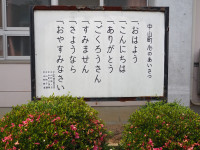 中山町のあいさつ
「おはよう
「こんにちは
「ありがとう
「ごくろうさん
「すみません
「さようなら
「おやすみなさい